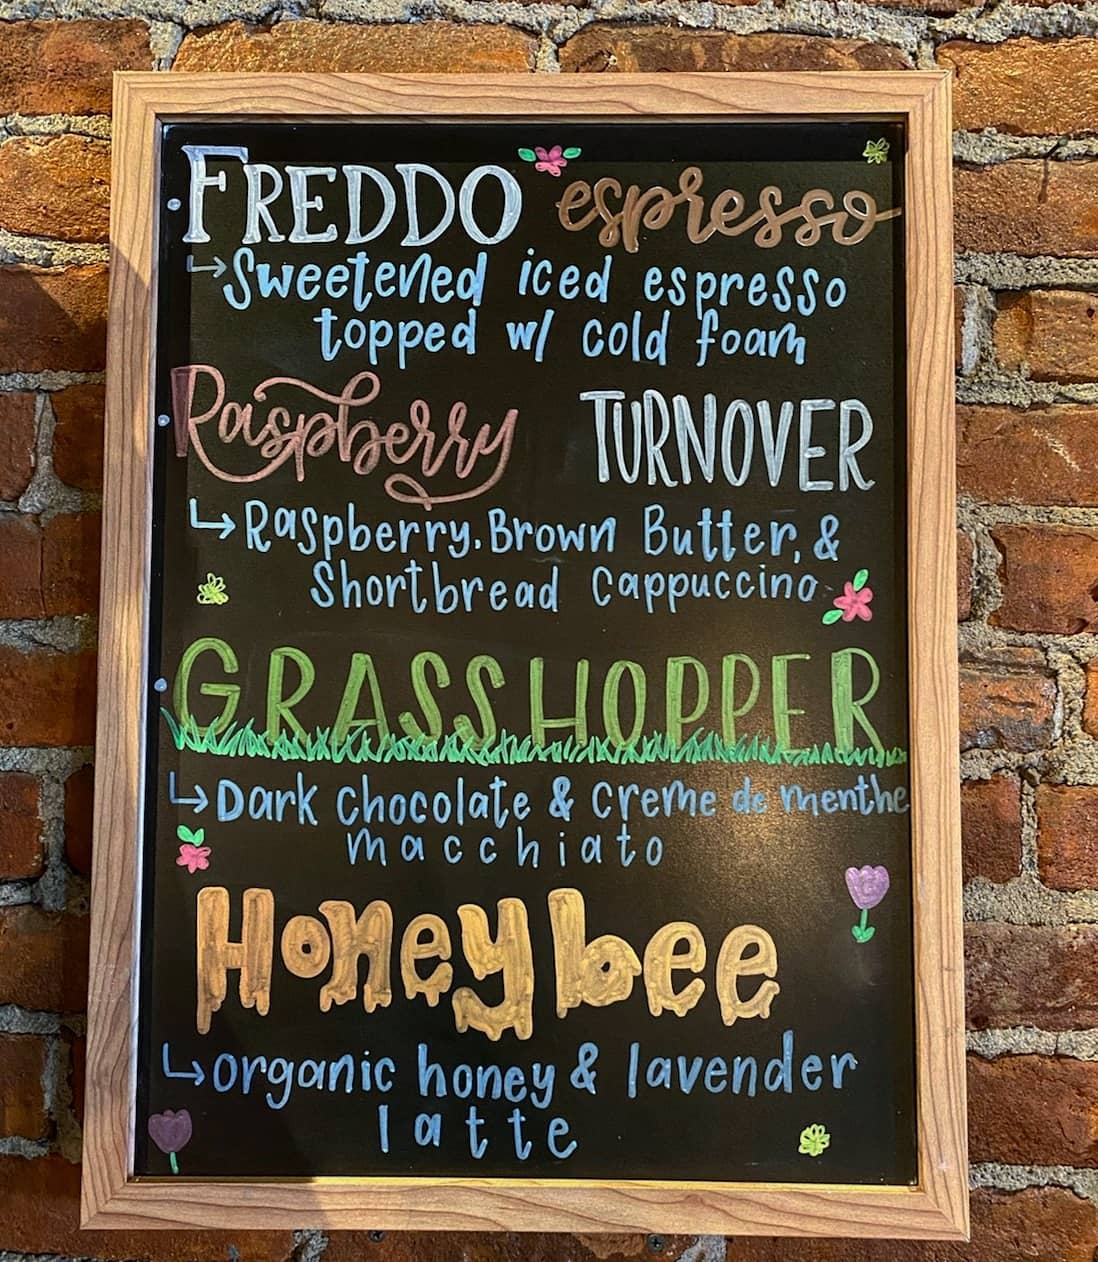 FREDDO espresso
↳Sweetened iced espresso
topped w/ cold foam
Raspberry TURNOVER
↳Raspberry, Brown Butter, &
Shortbread Cappuccino
GRASSHOPPER
↳Dark chocolate & creme de menthe
macchiato
Honeybee
↳organic honey & lavender
latte